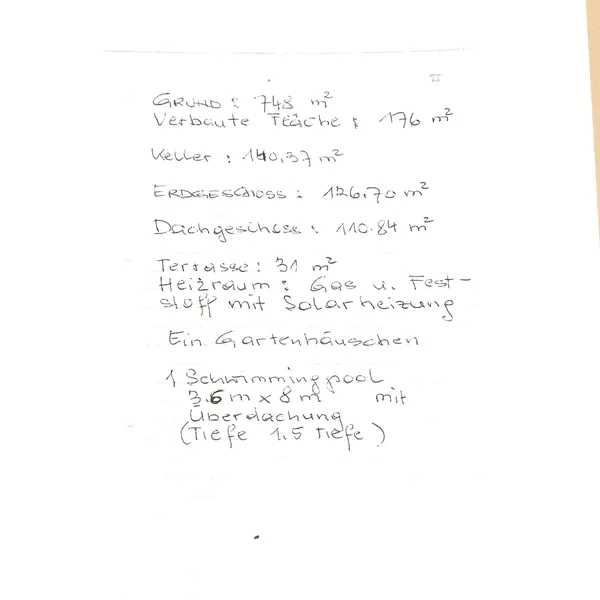 GRUND : 748 m²
Verbaute Fläche : 176 m²
Keller : 140,37 m²
ERDGESCHOSS : 126.70 m²
Dachgeschoss : 110.84 m²
Terrasse : 31 m²
Heizraum : Gas u. Fest-
stoff mit Solarheizung
Ein Gartenhäuschen
1 Schwimmingpool
3.6 m x 8 m mit
Überdachung
(Tiefe 1.5 Tiefe)